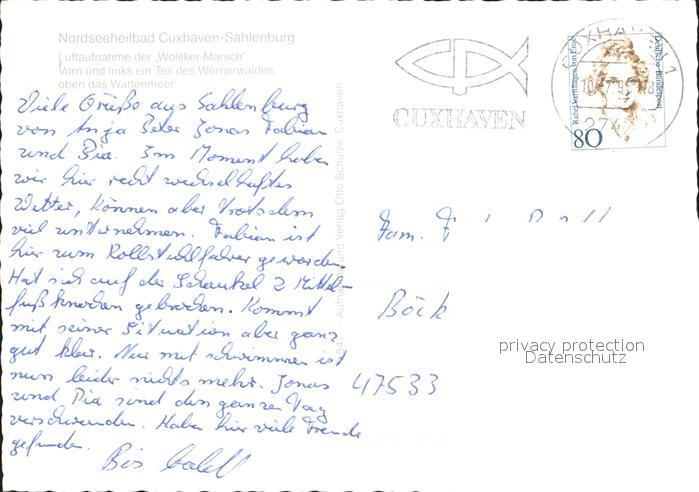 Nordseeheilbad Cuxhaven-Sahlenburg
Luftaufnahme der „Wolsker Marsch"
Vorn und links ein Teil des Wernerwaldes,
oben das Wattenmeer
Viele Grüße aus Sahlenburg
von Anja Peter Jonas Fabian
und Pia. Im Moment haben
wir hier recht wechselhaftes
Wetter, können aber trotzdem
viel unternehmen. Fabian ist
hier zum Rollstuhlfahrer geworden.
Hat sich auf der Schaukel 2 Mittel-
fußknochen gebrochen. Kommt
mit seiner Situation aber ganz
gut klar. Nur mit schwimmen ist
nun leider nichts mehr. Jonas
und Pia sind den ganzen Tag
verschwunden. Haben hier viele Freunde
gefunden.
Bis bald
Verlag Otto Schulze, Cuxhaven
CUXHAVEN
CUXHAVEN 1
80
Fam.
Böck
47533
privacy protection
Datenschutz